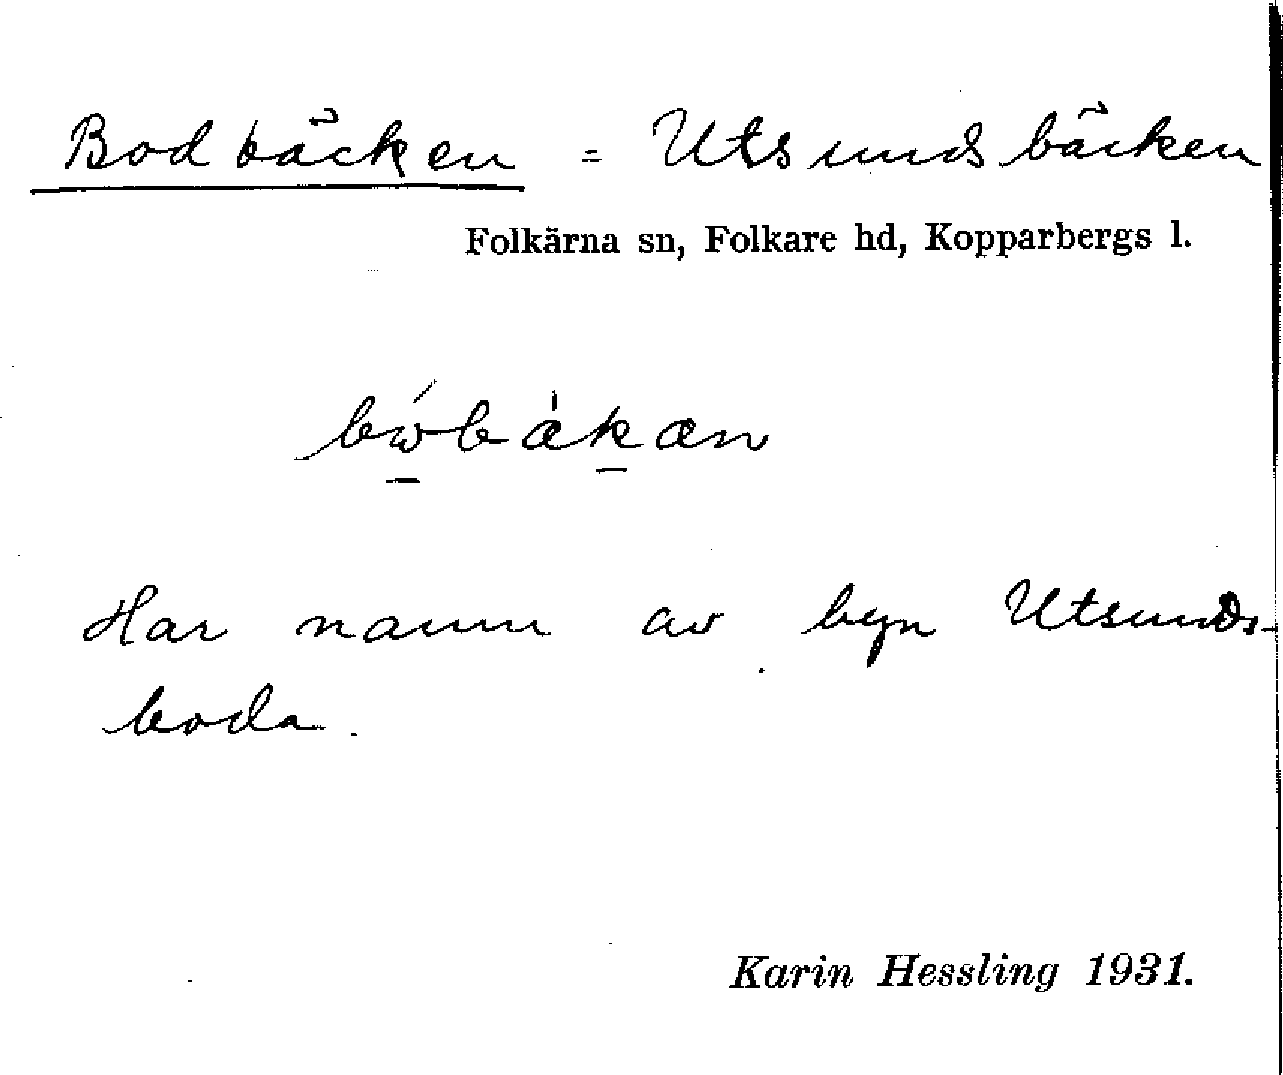 Bodbäcken = Utsundsbäcken
Folkärna sn, Folkare hd, Kopparbergs l.
bẃ̱bæ̍ḵæn
Har namn av byn Utsunds-
boda.
Karin Hessling 1931.